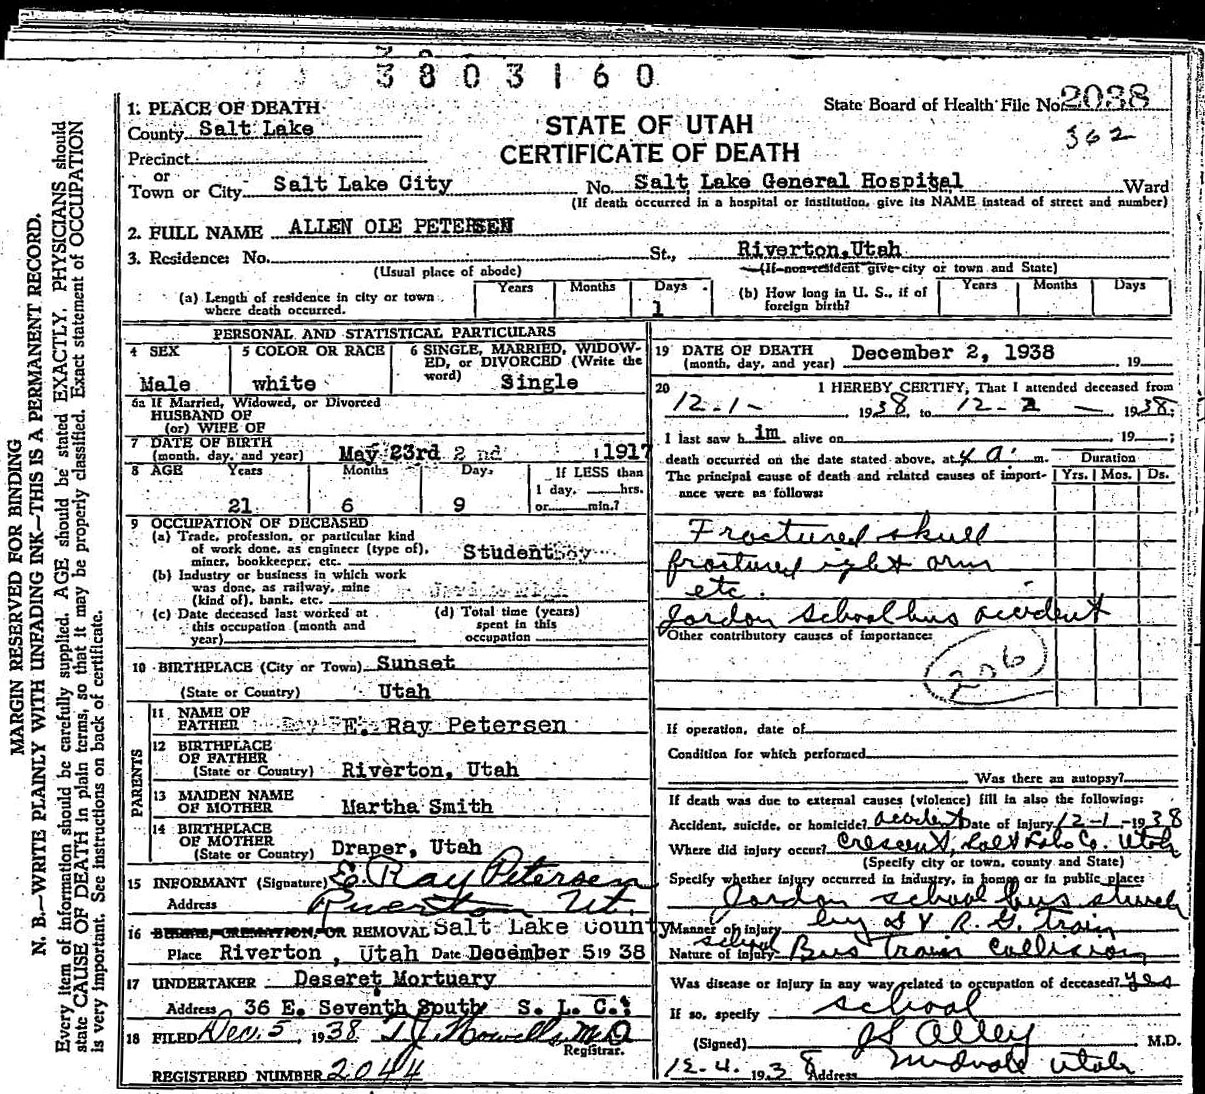 3803160
State Board of Health File No. 2038
362
STATE OF UTAH
CERTIFICATE OF DEATH
1. PLACE OF DEATH
County Salt Lake
Precinct
or
Town or City Salt Lake City No. Salt Lake General Hospital Ward
(If death occurred in a hospital or institution, give its NAME instead of street and number)
2. FULL NAME ALLEN OLE PETERSEN
3. Residence: No. St., Riverton, Utah
(Usual place of abode) (If non-resident give city or town and State)
(a) Length of residence in city or town where death occurred. Years Months Days 1
(b) How long in U. S., if of foreign birth? Years Months Days
PERSONAL AND STATISTICAL PARTICULARS
4 SEX Male
5 COLOR OR RACE white
6 SINGLE, MARRIED, WIDOWED, or DIVORCED (Write the word) Single
6a If Married, Widowed, or Divorced
HUSBAND OF
(or) WIFE OF
7 DATE OF BIRTH
(month, day, and year) May 23rd 2nd 1917
8 AGE Years 21 Months 6 Days 9
If LESS than
1 day, hrs.
or min.?
9 OCCUPATION OF DECEASED
(a) Trade, profession, or particular kind
of work done, as engineer (type of),
miner, bookkeeper, etc. Student
(b) Industry or business in which work
was done, as railway, mine
(kind of), bank, etc.
(c) Date deceased last worked at
this occupation (month and
year)
(d) Total time (years)
spent in this
occupation
10 BIRTHPLACE (City or Town) Sunset
(State or Country) Utah
PARENTS
11 NAME OF
FATHER E. Ray Petersen
12 BIRTHPLACE
OF FATHER
(State or Country) Riverton, Utah
13 MAIDEN NAME
OF MOTHER Martha Smith
14 BIRTHPLACE
OF MOTHER
(State or Country) Draper, Utah
15 INFORMANT (Signature) E. Ray Petersen
Address Riverton Ut.
16 BURIAL, CREMATION, OR REMOVAL Salt Lake County
Place Riverton, Utah Date December 5 19 38
17 UNDERTAKER Deseret Mortuary
Address 36 E. Seventh South S. L. C.
18 FILED Dec. 5, 1938 M.D.
Registrar.
REGISTERED NUMBER 2044
19 DATE OF DEATH
(month, day, and year) December 2, 1938 19
20 I HEREBY CERTIFY, That I attended deceased from
12-1- 1938 to 12-2- 1938;
I last saw him alive on , 19 ;
death occurred on the date stated above, at 4 a. m.
The principal cause of death and related causes of importance were as follows:
Duration
Yrs. Mos. Ds.
Fractured skull
fractured right arm
etc.
Jordon school bus accident
Other contributory causes of importance:
206
If operation, date of
Condition for which performed
Was there an autopsy?
If death was due to external causes (violence) fill in also the following:
Accident, suicide, or homicide? accident Date of injury 12-1-1938
Where did injury occur? Crescent, Salt Lake Co. Utah
(Specify city or town, county and State)
Specify whether injury occurred in industry, in home, or in public place:
Jordon school bus struck
Manner of injury by D & R. G. train
Nature of injury school Bus train collision
Was disease or injury in any way related to occupation of deceased? yes
If so, specify school
(Signed) Alley M.D.
12-4-1938 Address Midvale Utah
MARGIN RESERVED FOR BINDING
N. B.—WRITE PLAINLY WITH UNFADING INK—THIS IS A PERMANENT RECORD.
Every item of information should be carefully supplied. AGE should be stated EXACTLY. PHYSICIANS should
state CAUSE OF DEATH in plain terms, so that it may be properly classified. Exact statement of OCCUPATION
is very important. See instructions on back of certificate.